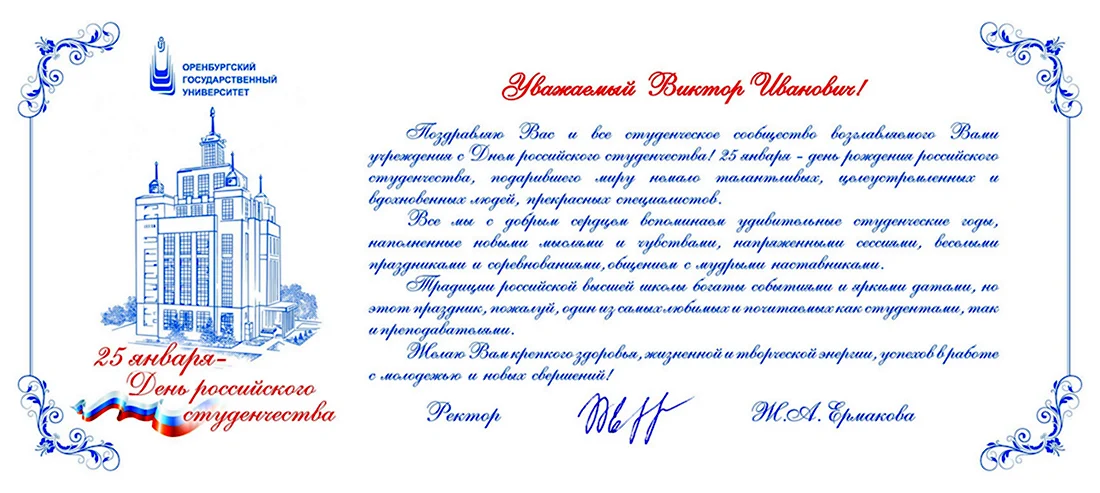 ОРЕНБУРГСКИЙ
ГОСУДАРСТВЕННЫЙ
УНИВЕРСИТЕТ
25 января-
День российского
студенчества
Уважаемый Виктор Иванович!
Поздравляю Вас и все студенческое сообщество возглавляемого Вами
учреждения с Днем российского студенчества! 25 января - день рождения российского
студенчества, подарившего миру немало талантливых, целеустремленных и
вдохновенных людей, прекрасных специалистов.
Все мы с добрым сердцем вспоминаем удивительные студенческие годы,
наполненные новыми мыслями и чувствами, напряженными сессиями, веселыми
праздниками и соревнованиями, общением с мудрыми наставниками.
Традиции российской высшей школы богаты событиями и яркими датами, но
этот праздник, пожалуй, один из самых любимых и почитаемых как студентами, так
и преподавателями.
Желаю Вам крепкого здоровья, жизненной и творческой энергии, успехов в работе
с молодежью и новых свершений!
Ректор Ж.А. Ермакова